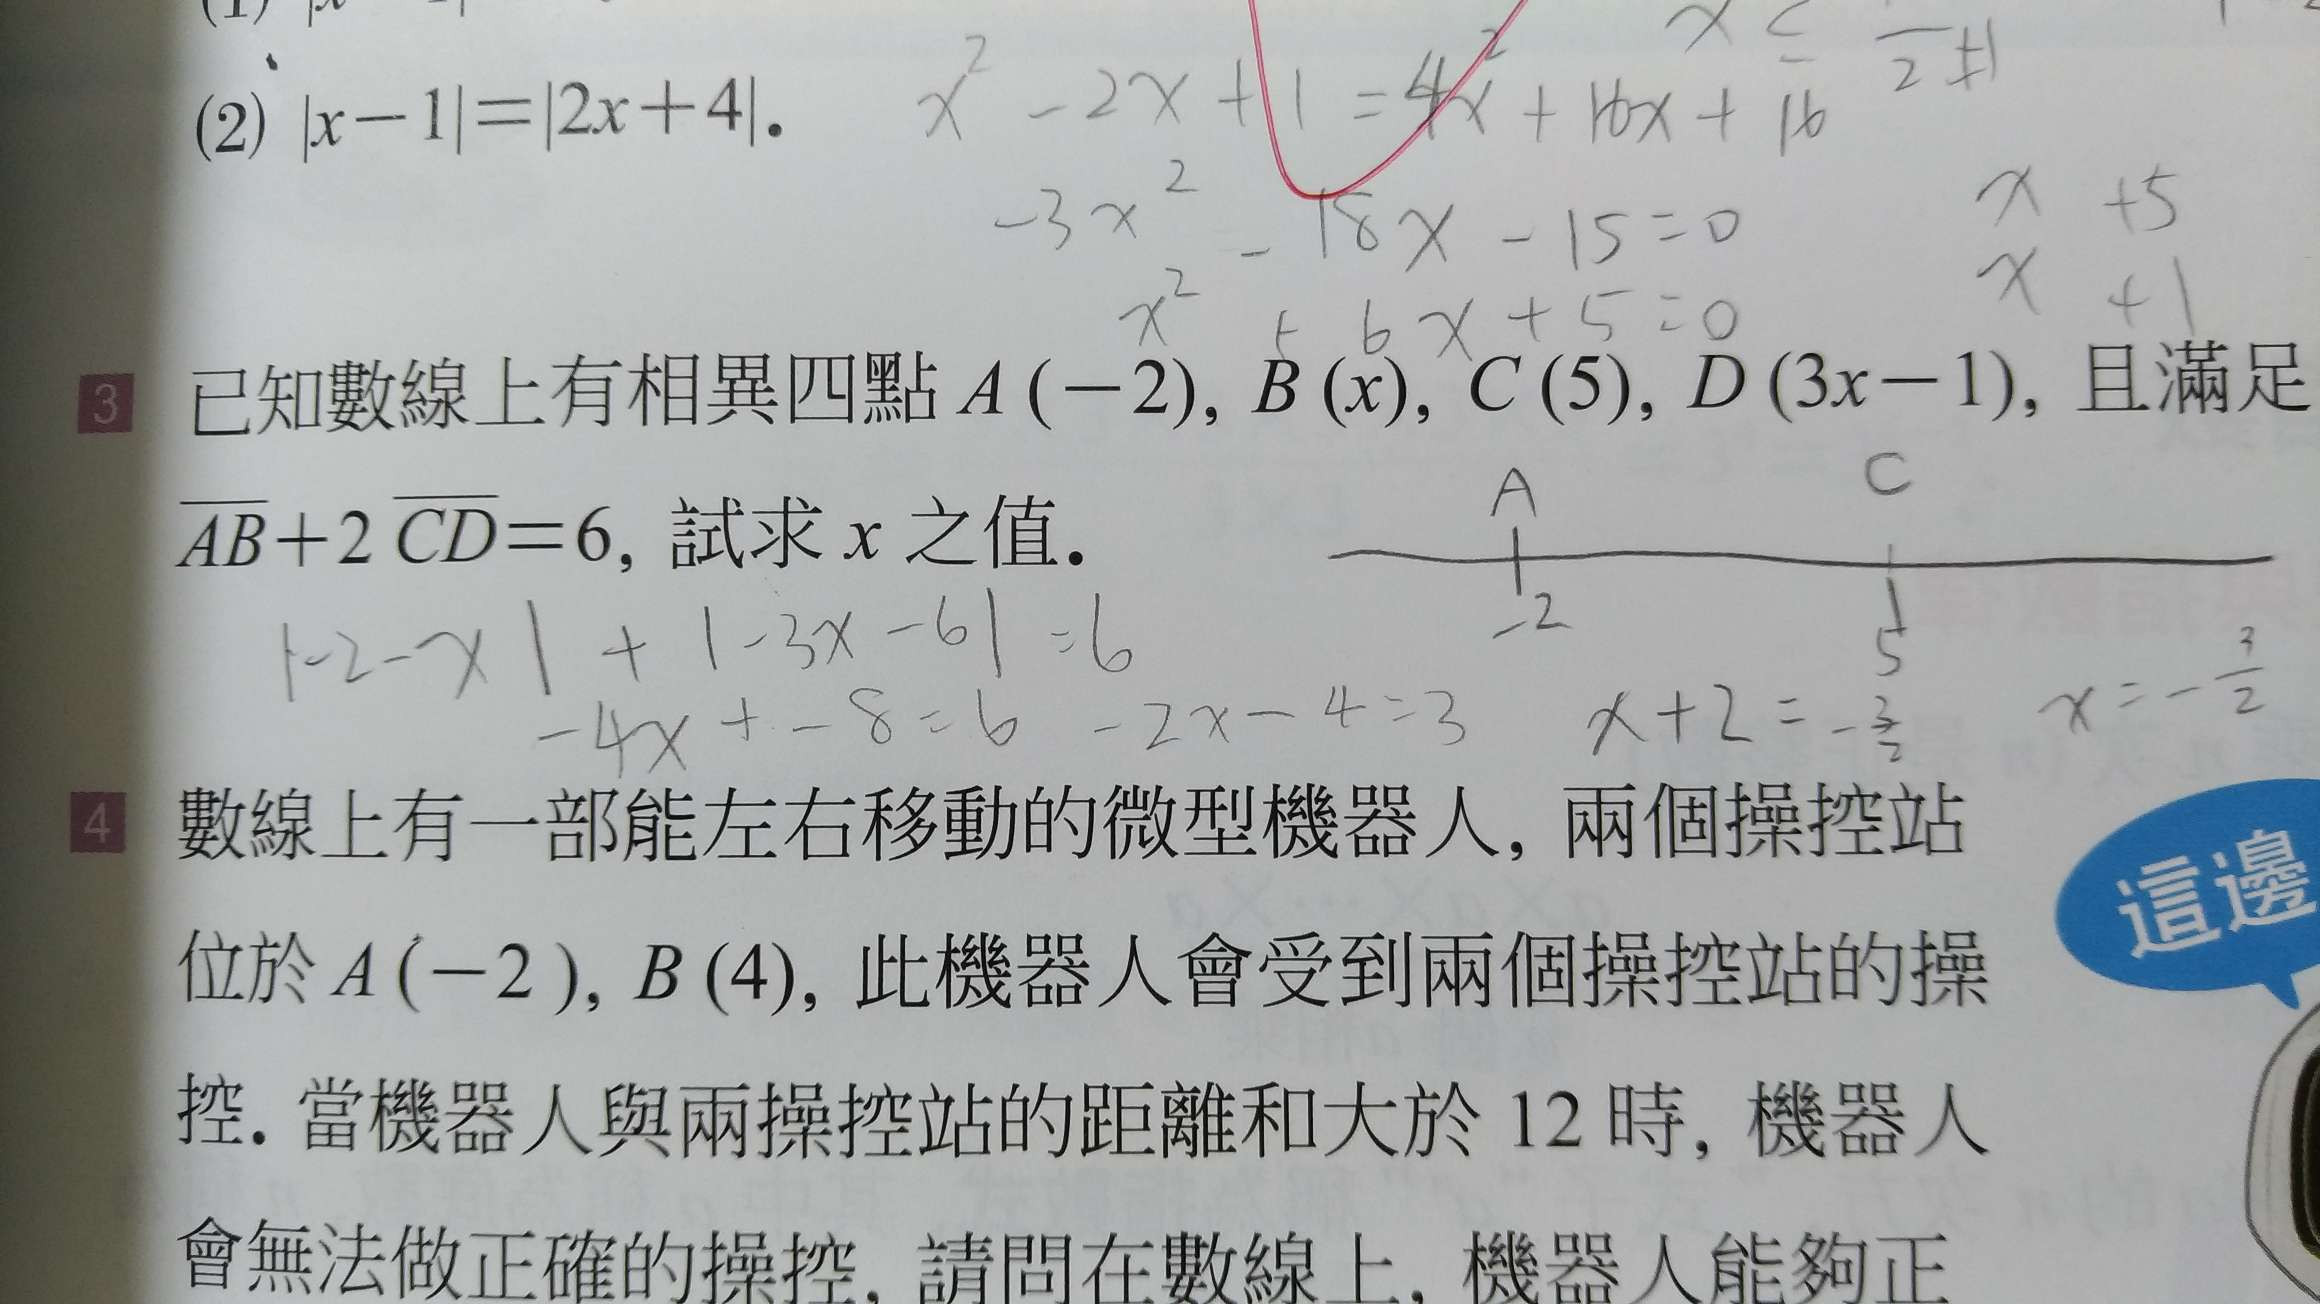 (2) |x−1|=|2x+4|. x² − 2x + 1 = 4x² + 16x + 16
−3x² − 18x − 15 = 0
x +5
x² + 6x + 5 = 0
x +1
3 已知數線上有相異四點 A (−2), B (x), C (5), D (3x−1), 且滿足
A C
AB+2 CD=6, 試求 x 之值.
−2 5
|−2−x| + |−3x−6| = 6
−4x + −8 = 6 −2x − 4 = 3 x + 2 = −3/2 x = −3/2
4 數線上有一部能左右移動的微型機器人, 兩個操控站
這邊
位於 A (−2 ), B (4), 此機器人會受到兩個操控站的操
控. 當機器人與兩操控站的距離和大於 12 時, 機器人
會無法做正確的操控, 請問在數線上, 機器人能夠正